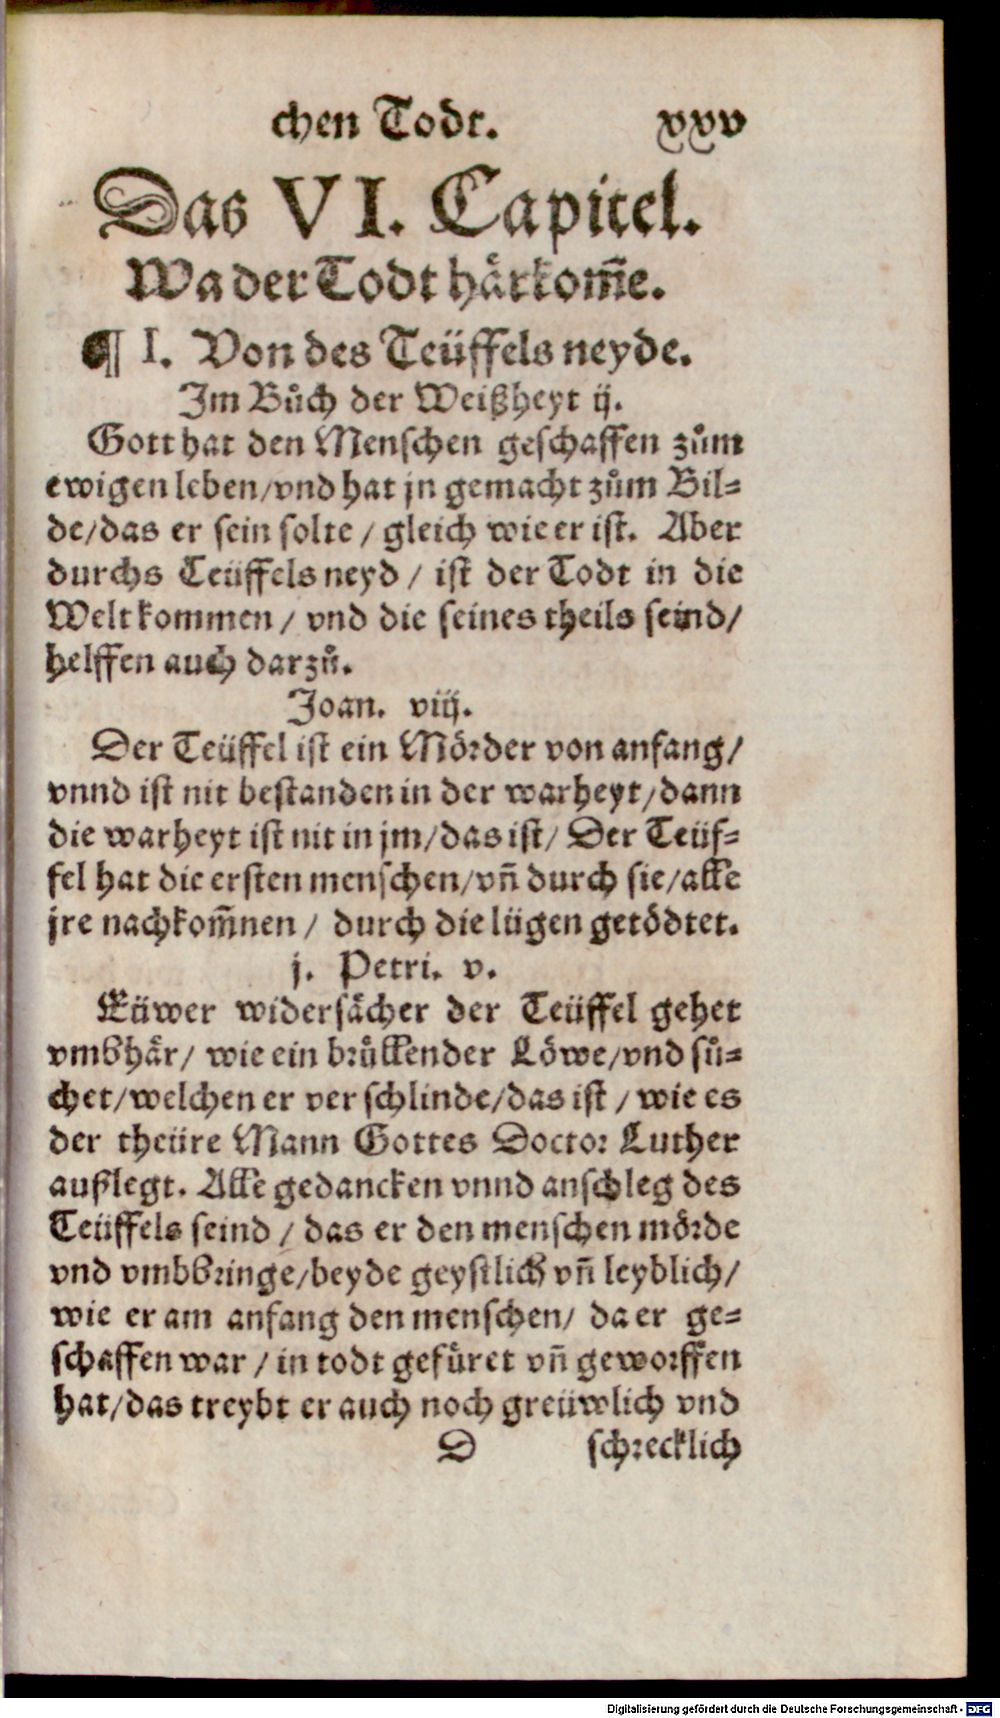 chen Todt. xxv
Das VI. Capitel.
Wa der Todt härkom̃e.
¶ I. Von des Teüffels neyde.
Im Bůch der Weißheyt ij.
Gott hat den Menschen geschaffen zům
ewigen leben/vnd hat jn gemacht zům Bil-
de/das er sein solte / gleich wie er ist. Aber
durchs Teüffels neyd / ist der Todt in die
Welt kommen / vnd die seines theils seind/
helffen auch darzů.
Joan. viij.
Der Teüffel ist ein Mörder von anfang/
vnnd ist nit bestanden in der warheyt/dann
die warheyt ist nit in jm/das ist/ Der Teüf-
fel hat die ersten menschen/vñ durch sie/alle
jre nachkom̃nen / durch die lügen getödtet.
j. Petri. v.
Eüwer widersächer der Teüffel gehet
vmbhär/ wie ein brüllender Löwe/vnd sů-
chet/welchen er verschlinde/das ist / wie es
der theüre Mann Gottes Doctor Luther
außlegt. Alle gedancken vnnd anschleg des
Teüffels seind / das er den menschen mörde
vnd vmbbringe/beyde geystlich vñ leyblich/
wie er am anfang den menschen/ da er ge-
schaffen war / in todt gefüret vñ geworffen
hat/das treybt er auch noch greüwlich vnd
D schrecklich
Digitalisierung gefördert durch die Deutsche Forschungsgemeinschaft - DFG